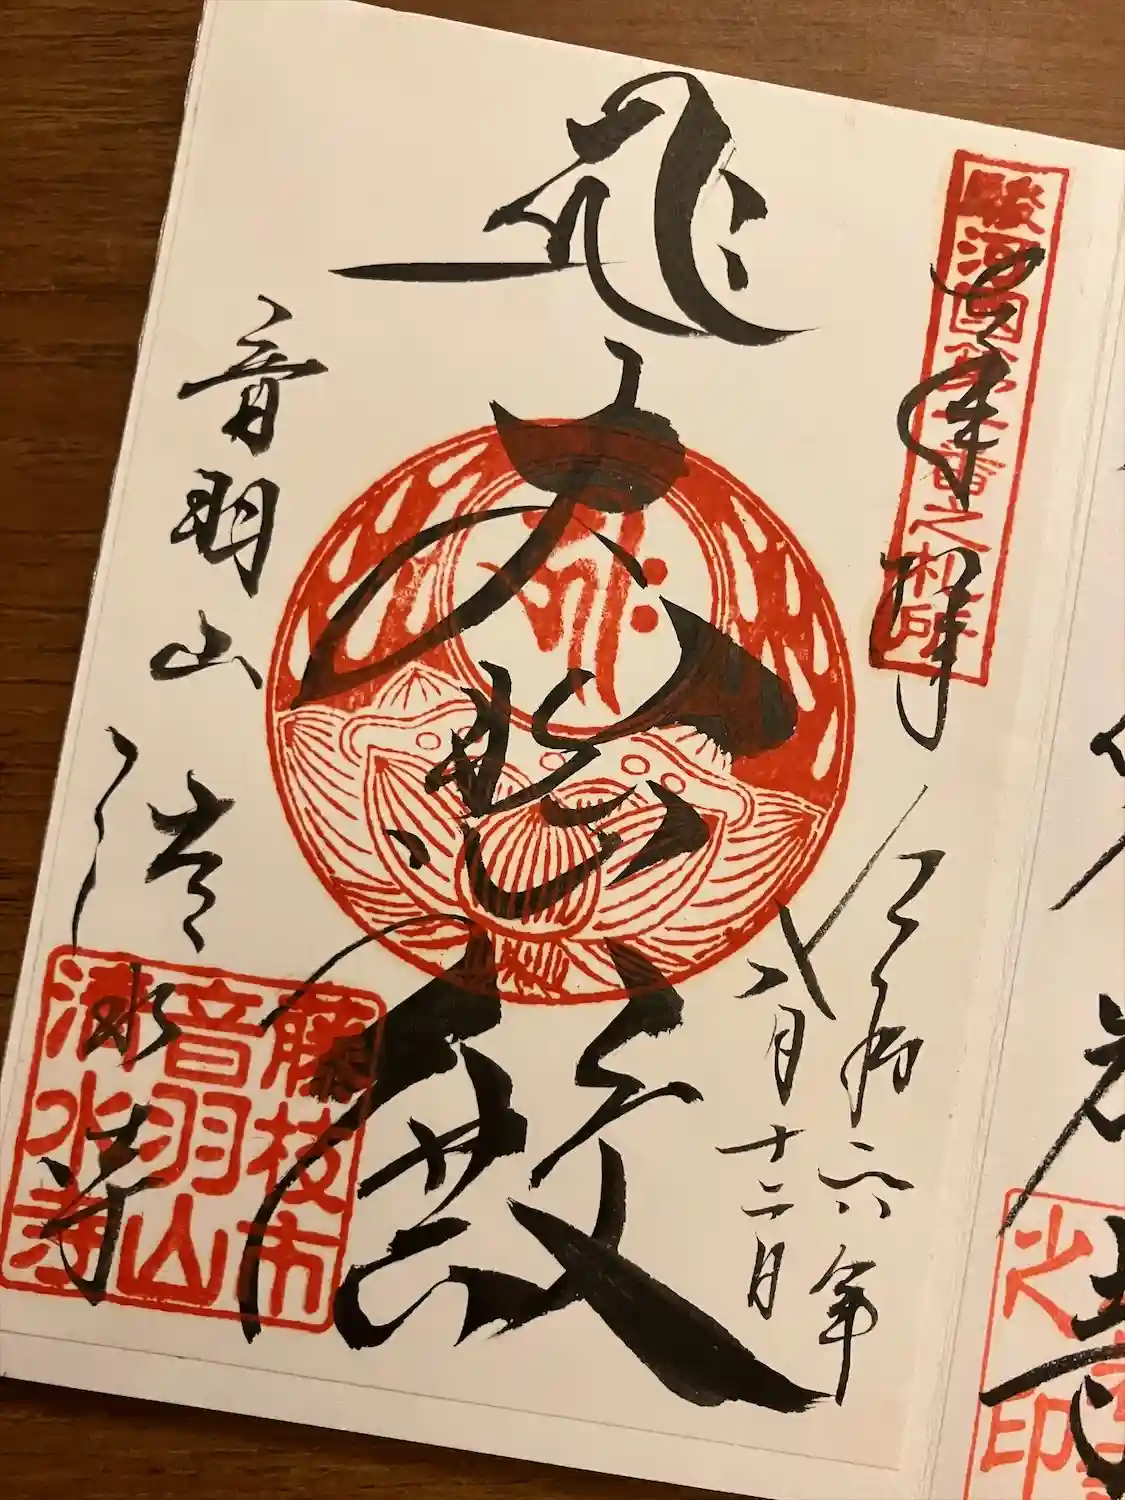 奉拝
令和六年
八月十二日
駿河国第二番之札所
大悲殿
音羽山
清水寺
藤枝市
音羽山
清水寺
之印